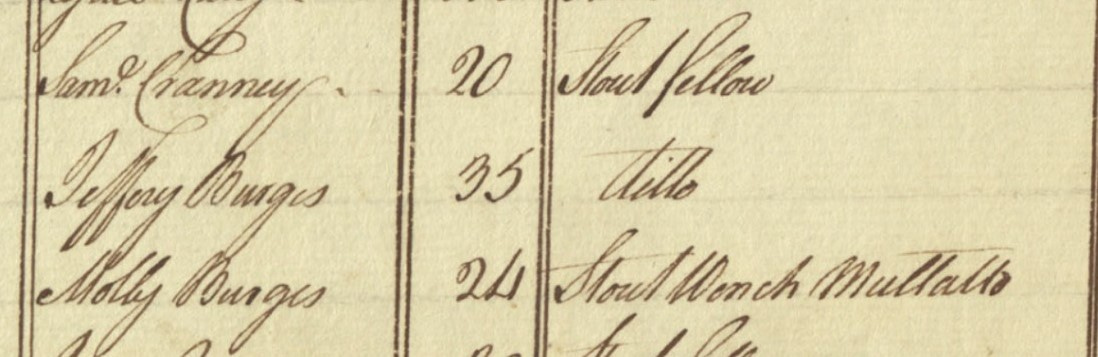 Sam.d Cranney 20 Stout fellow
Jeffery Burges 35 ditto
Molly Burges 24 Stout Wench Mullatto